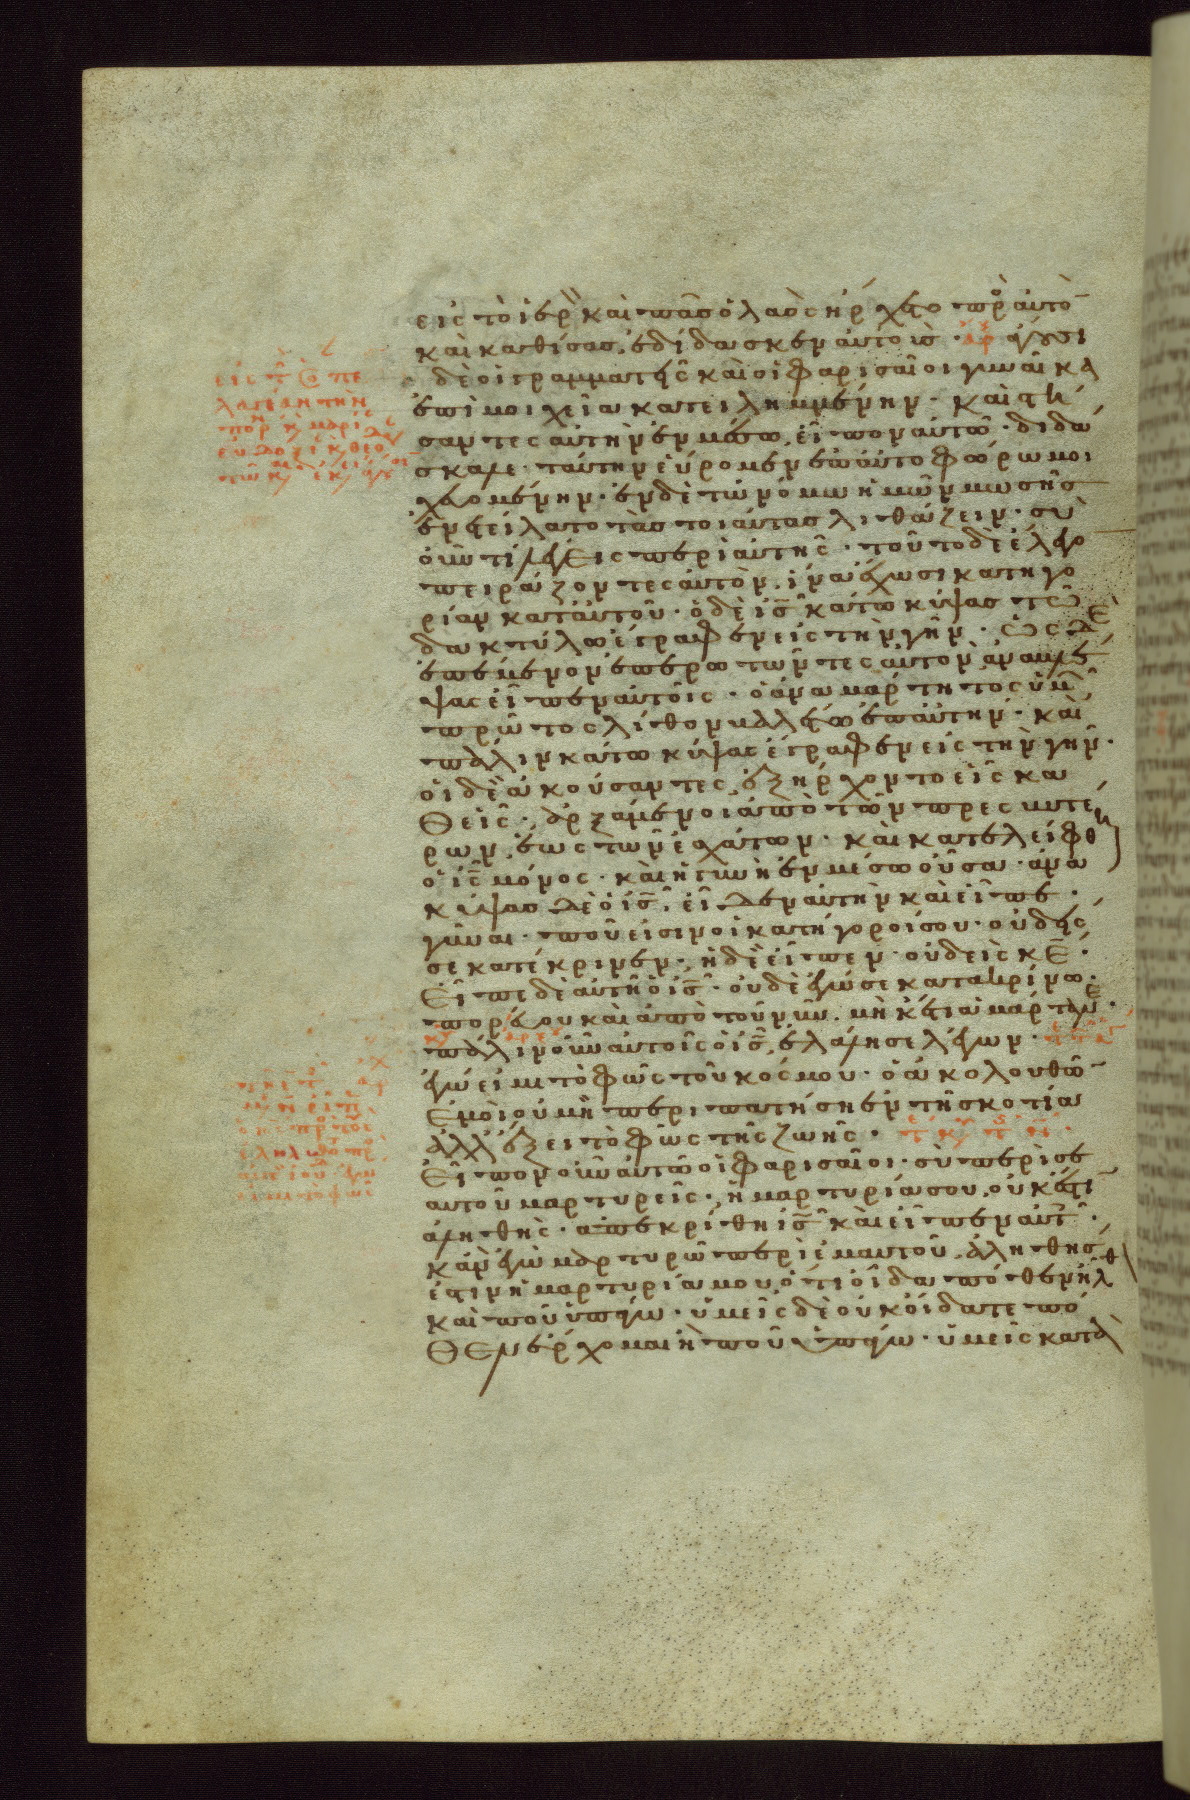 εἰς τὸ ἱερὸ καὶ πᾶσ ὁ λαὸς ἤρχετο πρὸ αὐτὸ
καὶ καθίσασ, ἐδίδασκεν αὐτούσ· ἀρ ἄγουσι
δὲ οἱ γραμματεῖς καὶ οἱ φαρισαῖοι γυναῖκα
ἐπὶ μοιχεία κατειλημμένην· καὶ στή
σαντες αὐτὴν ἐν μέσω, εἶπον αὐτῶ· διδά
σκαλε· ταύτην εὕρομεν ἐπαυτοφώρω μοι
χευομένην· ἐν δὲ τῶ νόμω ἡμῶν μωσῆσ
ἐνετείλατο τὰσ τοιάυτασ λιθάζειν· σὺ
οὖν τί λέγεις περὶ αὐτῆς· τοῦτο δὲ ἔλεγο
πειράζοντες αὐτὸν, ἵνα ἔχωσι κατηγο
ρίαν κατ αὐτοῦ· ὁ δὲ ἰς κάτω κύψασ τῶ
δακτύλω ἔγραφεν εἰς τὴν γῆν· ὡς δὲ
ἐπέμενον ἐπερωτῶντες αὐτὸν ἀνακύ
ψας εἶπεν αὐτοῖς· ὁ ἀναμάρτητος ὑμ
πρῶτος λίθον βαλέτω ἐπ αὐτήν· καὶ
πάλιν κάτω κύψας ἔγραφεν εἰς τὴν γῆν·
οἱ δὲ ἀκούσαντες, ἐξήρχοντο εἷς κα
θεῖς· ἀρξάμενοι ἀπὸ τῶν πρεσβυτέ
ρων, ἕως τῶν ἐσχάτων· καὶ κατελείφθη
ὁ ἰς μόνος· καὶ ἡ γυνὴ ἐν μέσω οὖσα· ἀνα
κύψασ δὲ ὁ ἰς, εἶδεν αὐτὴν καὶ εἶπε·
γύναι· ποῦ εἰσιν οἱ κατήγοροί σου· οὐδείς
σε κατέκρινεν· ἡ δὲ εἶπεν· οὐδεὶς κε·
Εἶπε δὲ αὐτῆ ὁ ἰς· οὐδὲ ἐγώ σε κατακρίνω·
πορεύου καὶ ἀπὸ τοῦ νῦν, μὴκέτι ἁμάρτανε·
πάλιν οὖν αὐτοῖς ὁ ἰς, ἐλάλησε λέγων·
ἐγώ εἰμι τὸ φῶς τοῦ κόσμου· ὁ ἀκολουθῶ
ἐμοὶ οὐ μὴ περιπατήση ἐν τῆ σκοτία
ἀλλ ἕξει τὸ φῶς τῆς ζωῆς·
Εἶπον οὖν αὐτῶ οἱ φαρισαῖοι· σὺ περὶ σε
αυτοῦ μαρτυρεῖς· ἡ μαρτυρία σου, οὐκ ἔστι
ἀληθὴς· ἀπεκρίθη ἰς καὶ εἶπεν αὐτ·
κἀν ἐγὼ μαρτυρῶ περὶ ἐμαυτοῦ, ἀληθησ
ἐστιν ἡ μαρτυρία μου, ὅτι οἶδα πόθεν ἦλθ
καὶ ποῦ ὑπάγω· ὑμεῖς δὲ οὐκ οἴδατε πό
θεν ἔρχομαι ἢ ποῦ ὑπάγω· ὑμεῖς κατὰ